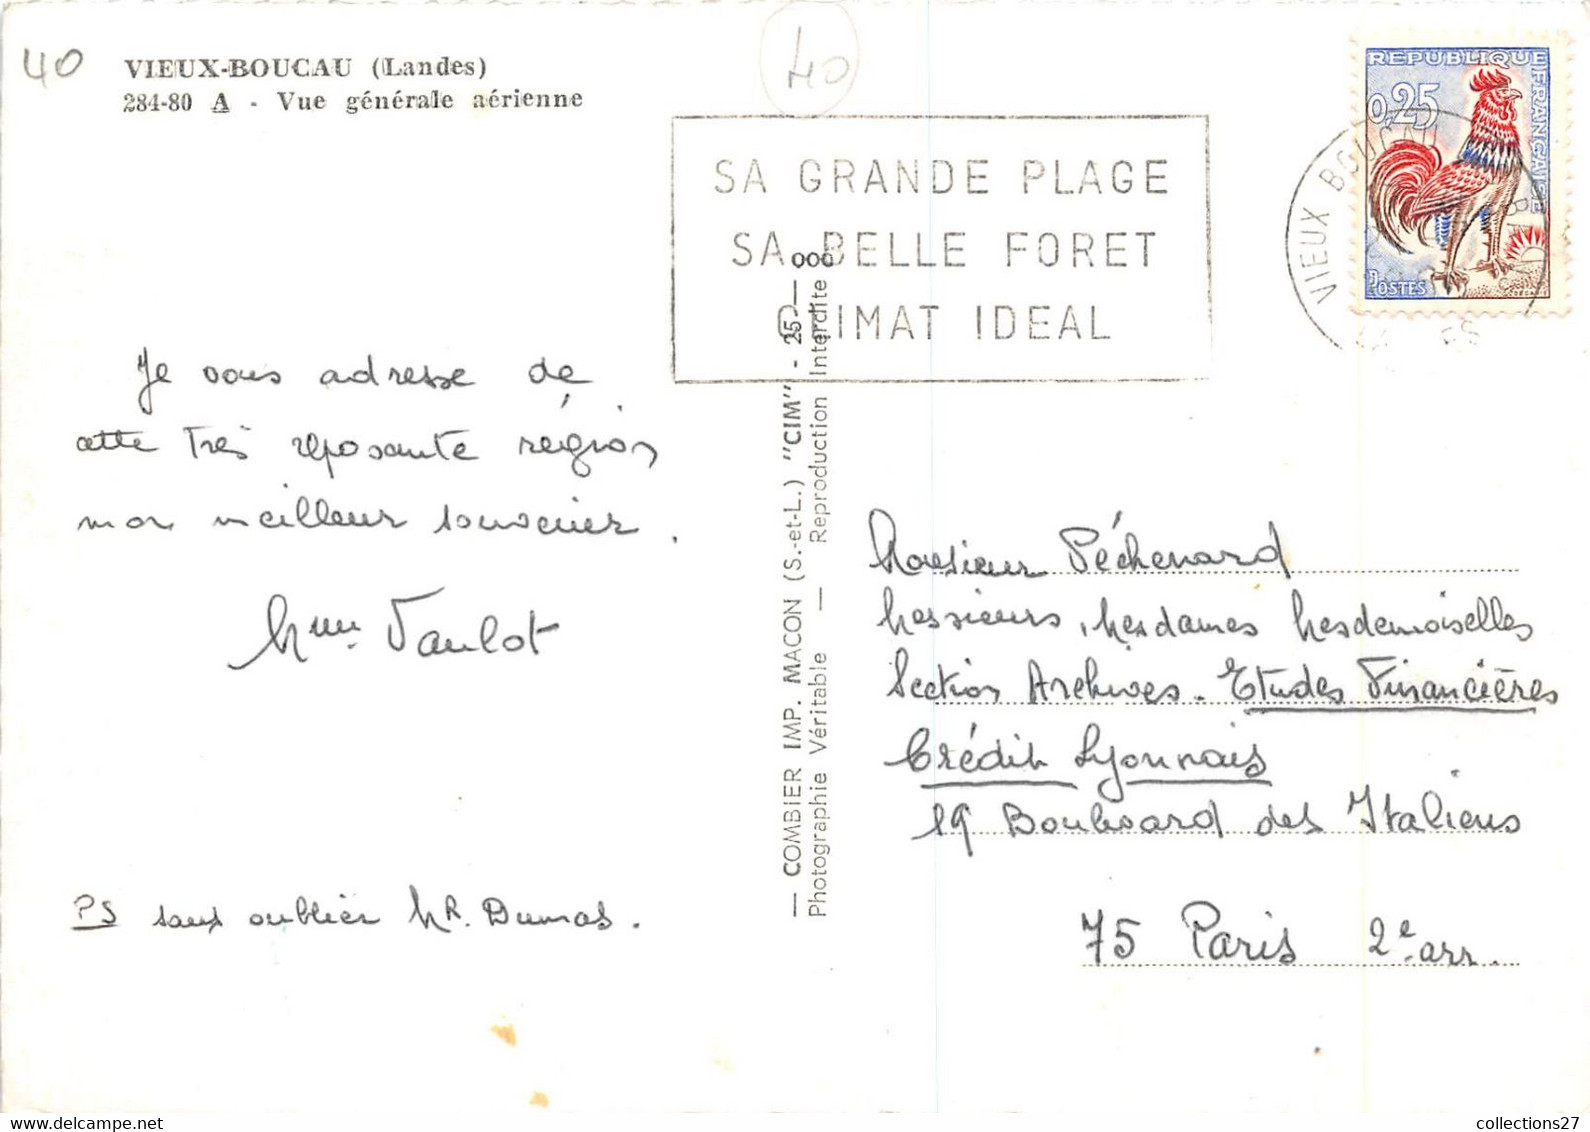 40
VIEUX-BOUCAU (Landes)
284-80 A - Vue générale aérienne
40
SA GRANDE PLAGE
SA BELLE FORET
CLIMAT IDEAL
REPUBLIQUE FRANÇAISE
0,25
POSTES
VIEUX BOUCAU
Je vous adresse de
cette très reposante région
mon meilleur souvenir.
Mme Vaulot
PS sans oublier MR. Dumas.
— COMBIER IMP. MACON (S.-et-L.) "CIM" - 25 — ooo
Photographie Véritable — Reproduction Interdite
Monsieur Péchenard
Messieurs, Mesdames Mesdemoiselles
Section Archives - Etudes Financières
Crédit Lyonnais
19 Boulevard des Italiens
75 Paris 2e arr.
collections27